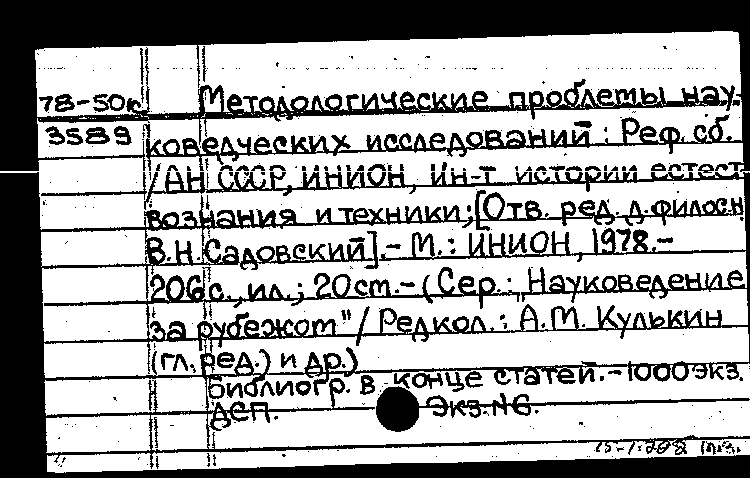 78-50к Методологические проблемы нау-
3589 коведческих исследований : Реф. сб.
/АН СССР, ИНИОН, Ин-т истории естест
вознания и техники;[Отв. ред. д.филос.н
В.Н.Садовский].- М.: ИНИОН, 1978.-
206с., ил.; 20см.-(Сер.: „Науковедение
за рубежом"/ Редкол.: А.М. Кулькин
(гл. ред.) и др.)
Библиогр. в конце статей.-1000экз.
ДСП. Экз.№6.